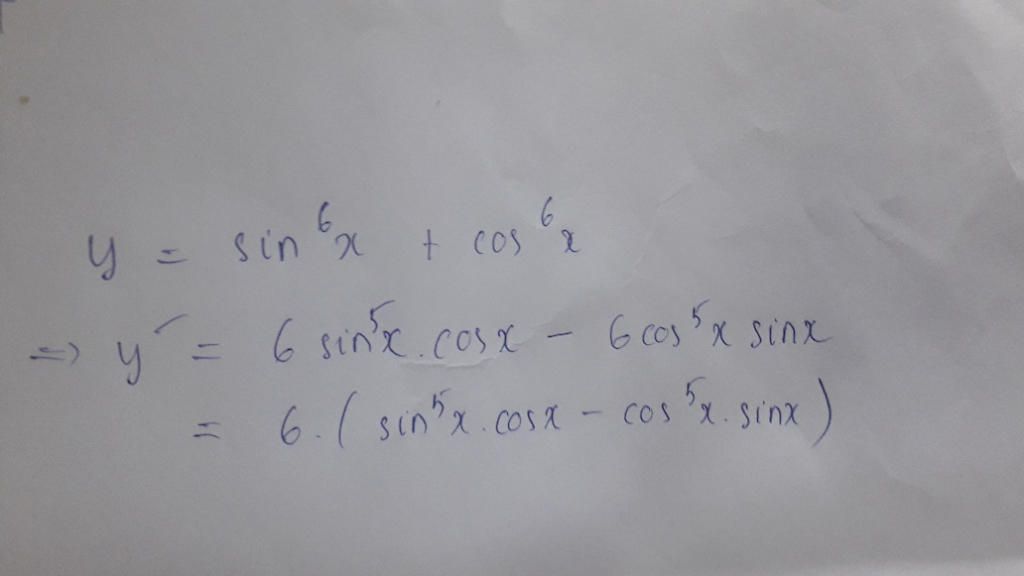 y = sin⁶x + cos⁶x
=> y' = 6 sin⁵x.cosx - 6cos⁵x sinx
= 6.(sin⁵x.cosx - cos⁵x.sinx)